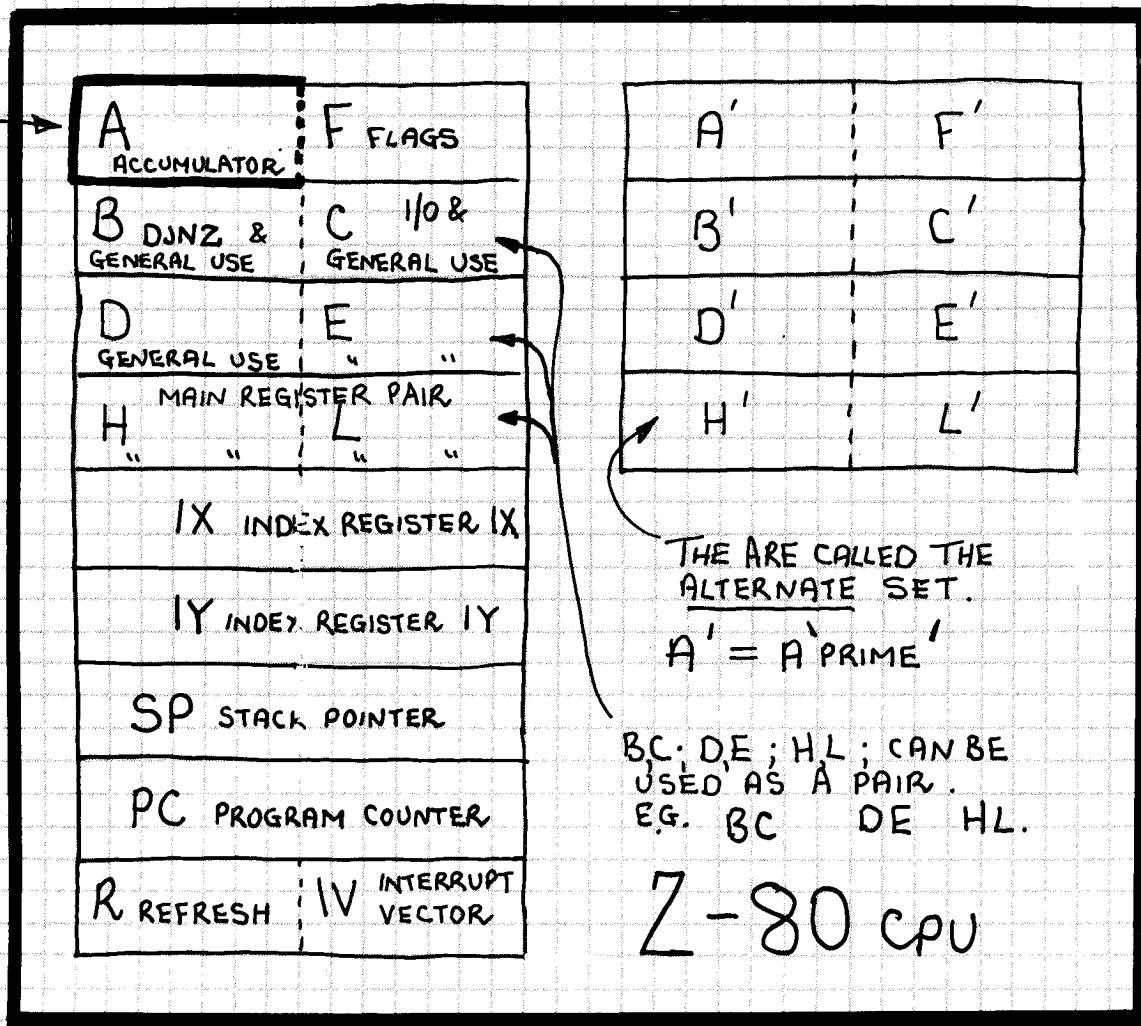 A F FLAGS
ACCUMULATOR
B DJNZ & C I/O &
GENERAL USE GENERAL USE
D E
GENERAL USE " "
MAIN REGISTER PAIR
H L
" " " "
IX INDEX REGISTER IX
IY INDEX REGISTER IY
SP STACK POINTER
PC PROGRAM COUNTER
R REFRESH IV INTERRUPT
VECTOR
A' F'
B' C'
D' E'
H' L'
THE ARE CALLED THE
ALTERNATE SET.
A' = A 'PRIME'
B,C; D,E; H,L; CAN BE
USED AS A PAIR.
E.G. BC DE HL.
Z-80 CPU